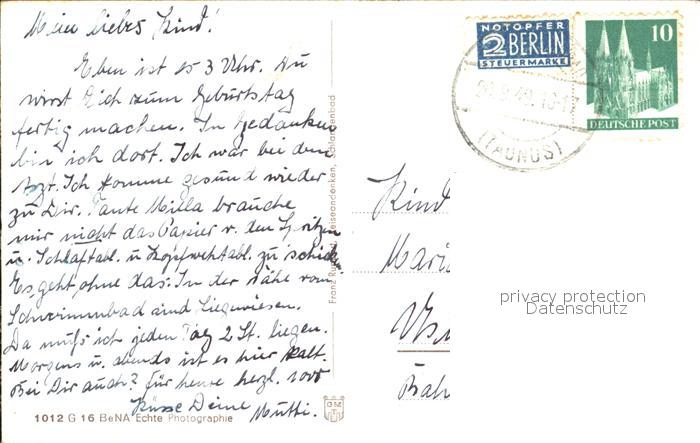 Mein liebes Kind!
Eben ist es 3 Uhr. Du
wirst Dich zum Geburtstag
fertig machen. In Gedanken
bin ich dort. Ich war bei dem
Arzt. Ich komme gesund wieder
zu Dir. Tante Milla brauche
mir nicht das Papier v. den Spritzen
u. Schlaftabl. u. Kopfwehtabl. zu schicken
Es geht ohne das. In der Nähe vom
Schwimmbad sind Liegewiesen.
Da muß ich jeden Tag 2 St. liegen.
Morgens u. abends ist es hier kalt.
Bei Dir auch? Für heute herzl. 1000
Küsse Deine
Mutti.
1012 G 16 BeNA Echte Photographie
Reiseandenken, Schlangenbad
NOTOPFER
2 BERLIN
STEUERMARKE
10
DEUTSCHE POST
(TAUNUS)
Kind
Mari
privacy protection
Datenschutz
Bah